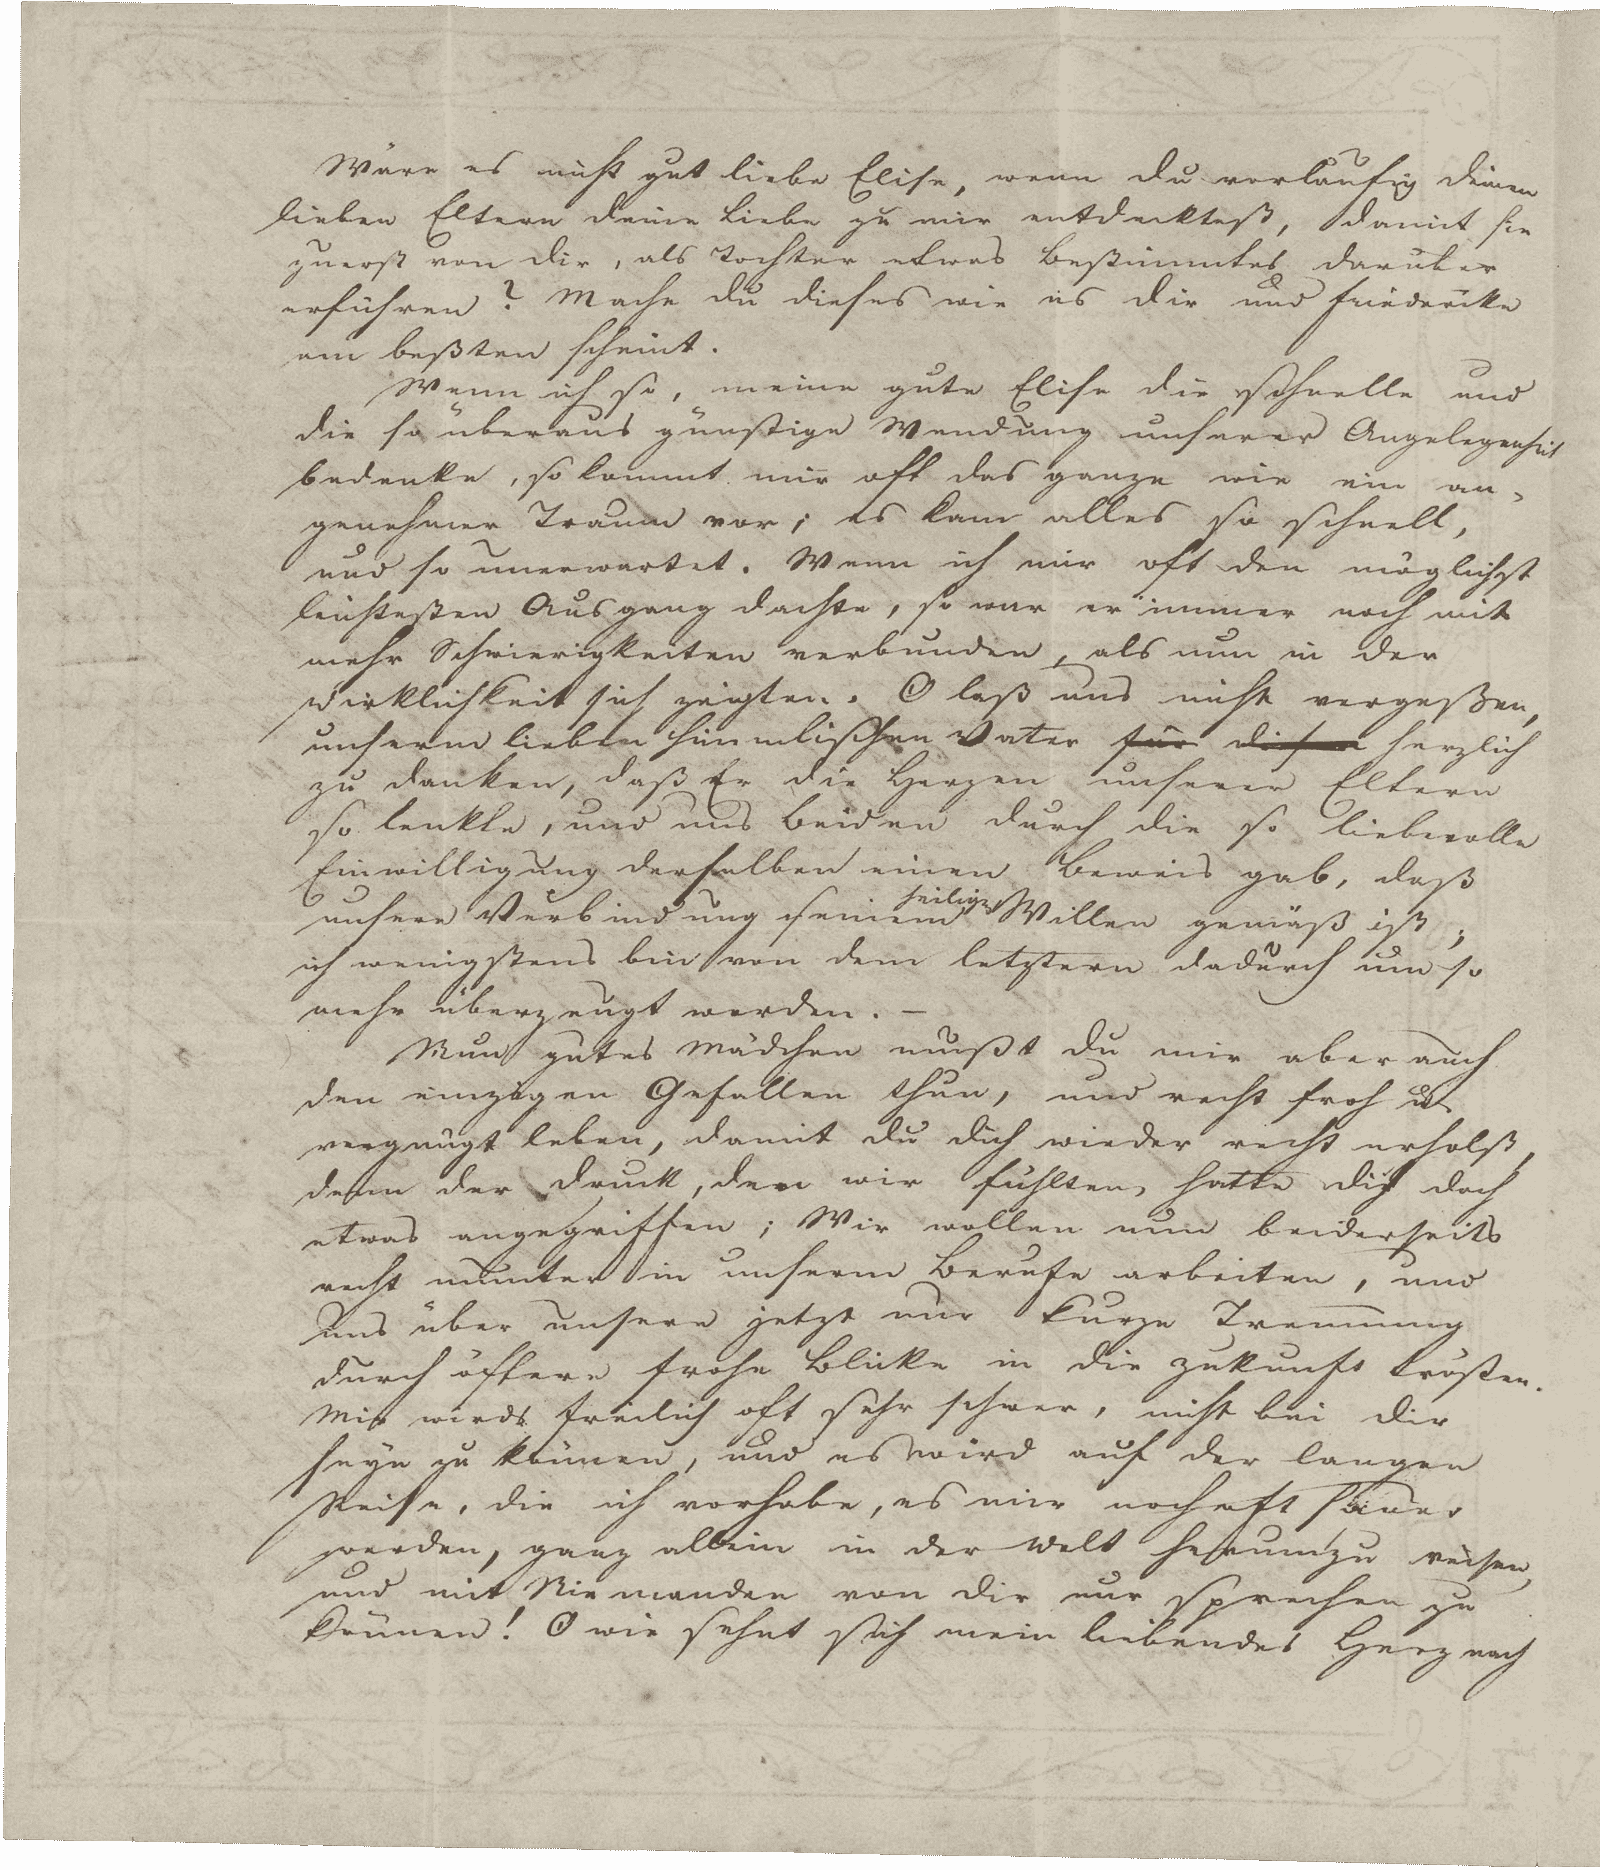 Wäre es nicht gut liebe Elise, wenn du vorläufig deinen
lieben Eltern deine Liebe zu mir entdecktest, damit sie
zuerst von dir, als Tochter etwas Bestimmtes darüber
erführen? Mache du dieses wie es dir und Friedericke
am beßten scheint.
Wenn ich so, meine gute Elise die schnelle und
die so überaus günstige Wendung unserer Angelegenheit
bedenke, so kommt mir oft das ganze wie ein an-
genehmer Traum vor; es kam alles so schnell,
und so unerwartet. Wenn ich mir oft den möglichst
leichtesten Ausgang dachte, so war er immer noch mit
mehr Schwierigkeiten verbunden, als nun in der
Wirklichkeit sich zeigten. O laß uns nicht vergeßen,
unserm lieben himmlischen Vater für diese herzlich
zu danken, daß Er die Herzen unserer Eltern
so lenkte, und uns beiden durch die so liebevolle
Einwilligung derselben einen Beweis gab, daß
unsere Verbindung seinem heiligen Willen gemäß ist;
ich wenigstens bin von dem letztern dadurch um so
mehr überzeugt worden. –
Nun gutes Mädchen mußt du mir aber auch
den einzigen Gefallen thun, und recht froh u.
vergnügt leben, damit du dich wieder recht erholst,
denn der Druck, den wir fühlten, hatte dich doch
etwas angegriffen; Wir wollen nun beiderseits
recht munter in unserm Berufe arbeiten, und
uns über unsere jetzt nur kurze Trennung
durch öftere frohe Blicke in die Zukunft trösten.
Mir wirds freilich oft sehr schwer, nicht bei dir
seyn zu können, und es wird auf der langen
Reise, die ich vorhabe, es mir noch oft
werden, ganz allein in der Welt herumzu reisen,
und mit Niemanden von dir nur sprechen zu
können! O wie sehnt sich mein liebendes Herz nach